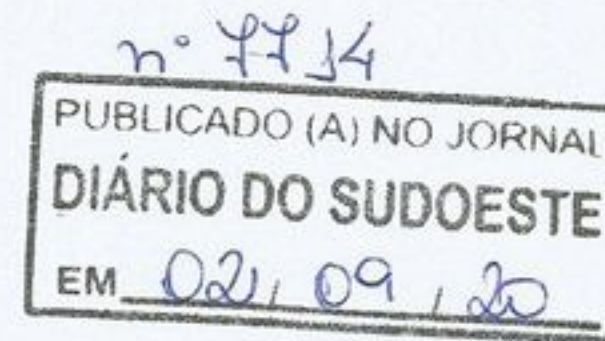 nº 7714
PUBLICADO (A) NO JORNAL
DIÁRIO DO SUDOESTE
EM 02, 09, 20